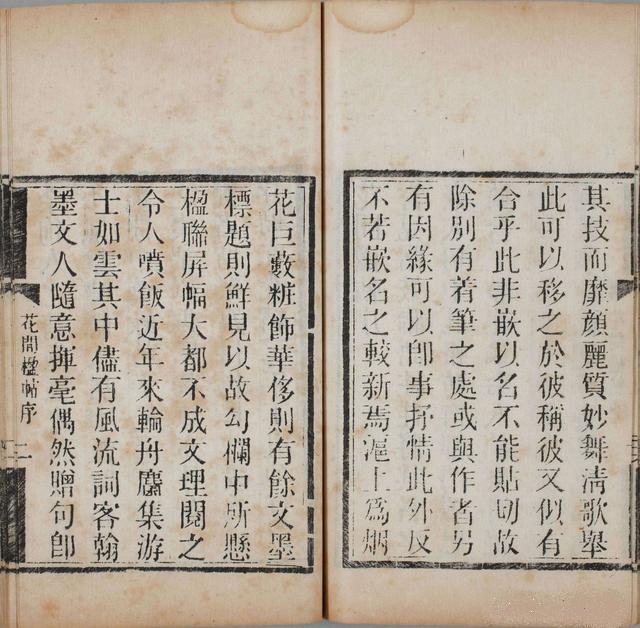 其技而靡顔麗質妙舞清歌舉
此可以移之於彼稱彼又似有
合乎此非嵌以名不能貼切故
除別有着筆之處或與作者另
有因緣可以即事抒情此外反
不若嵌名之較新焉滬上爲烟
花巨藪粧飾華侈則有餘文墨
標題則鮮見以故勾欄中所懸
楹聯屏幅大都不成文理閱之
令人噴飯近年來輪舟麕集游
士如雲其中儘有風流詞客翰
墨文人隨意揮毫偶然贈句卽
花間楹帖序
二